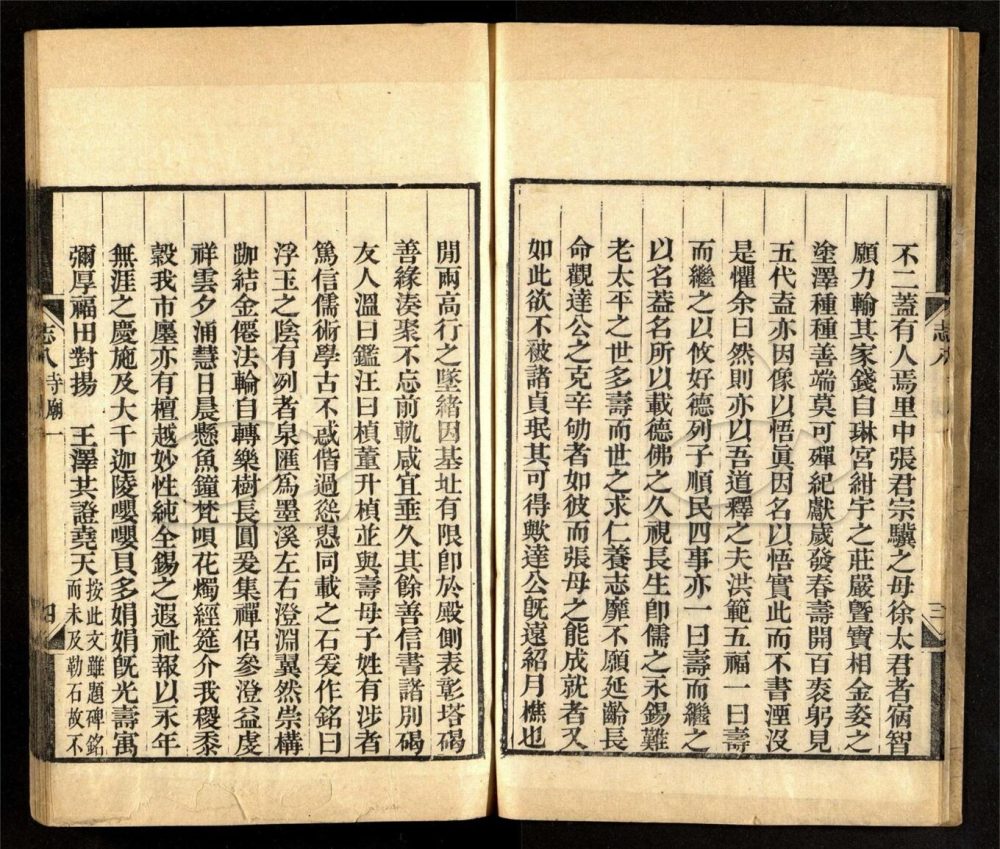 不二蓋有人焉里中張君宗驥之母徐太君者宿智
願力輸其家錢自琳宮紺宇之莊嚴曁寶相金姿之
塗澤種種善端莫可殫紀獻歲發春壽開百袠躬見
五代葢亦因像以悟眞因名以悟實此而不書湮沒
是懼余曰然則亦以吾道釋之夫洪範五福一曰壽
而繼之以攸好德列子順民四事亦一曰壽而繼之
以名葢名所以載德佛之久視長生卽儒之永錫難
老太平之世多壽而世之求仁養志靡不願延齡長
命觀達公之克辛劬者如彼而張母之能成就者又
如此欲不被諸貞珉其可得歟達公旣遠紹月樵也
志八
三
閒兩高行之墜緒因基址有限卽於殿側表彰塔碣
善緣湊聚不忘前軌咸宜垂久其餘善信書諸別碣
友人溫曰鑑汪曰楨董升楨並與壽母子姓有涉者
篤信儒術學古不惑偕過慫恿同載之石爰作銘曰
浮玉之陰有冽者泉匯爲墨溪左右澄淵翼然崇構
跏結金僊法輪自轉樂樹長圓爰集禪侶參澄益虔
祥雲夕涌慧日晨懸魚鐘梵唄花燭經筵介我稷黍
穀我市廛亦有檀越妙性純全錫之遐祉報以永年
無涯之慶施及大千迦陵嚶嚶貝多娟娟旣光壽寓
彌厚福田對揚　王澤共證堯天按此文雖題碑銘而未及勒石故不
志八寺廟一
四